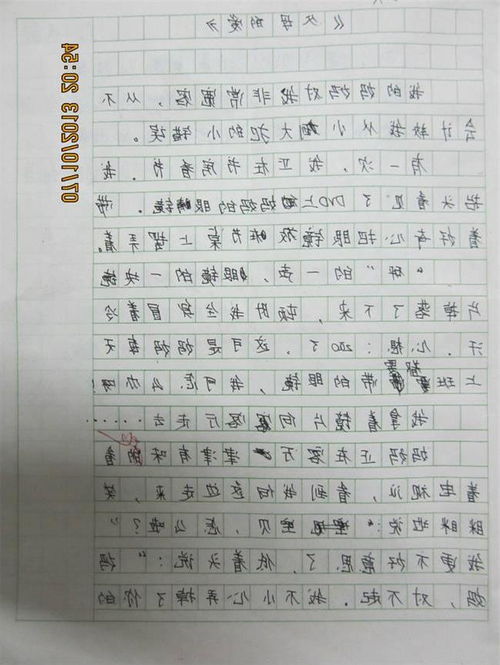 《父母的爱》
我的妈妈对我非常宽容，从不
会计较我从小大犯的小错误。
有一次，我正在书房看书。我
抬头看见了DVD上妈妈的眼镜。带
着好奇心把眼镜放在书桌上摆弄着。
“砰”的一声，眼镜的一块镜
片掉落了下来，顿时我全身冒着冷
汗。心想：200了，这可是妈妈每天
上班都要带的眼镜，我可怎么办啊
我拿着镜片向客厅走去……
妈妈正在客厅津津有味的看
着电视机，看到我向这边走来，笑
眯眯地说：“宝贝，怎么啦？”
我更不好意思了，低着头说：“妈
妈，对不起。我不小心弄掉了你的
07/01/2013 20:54